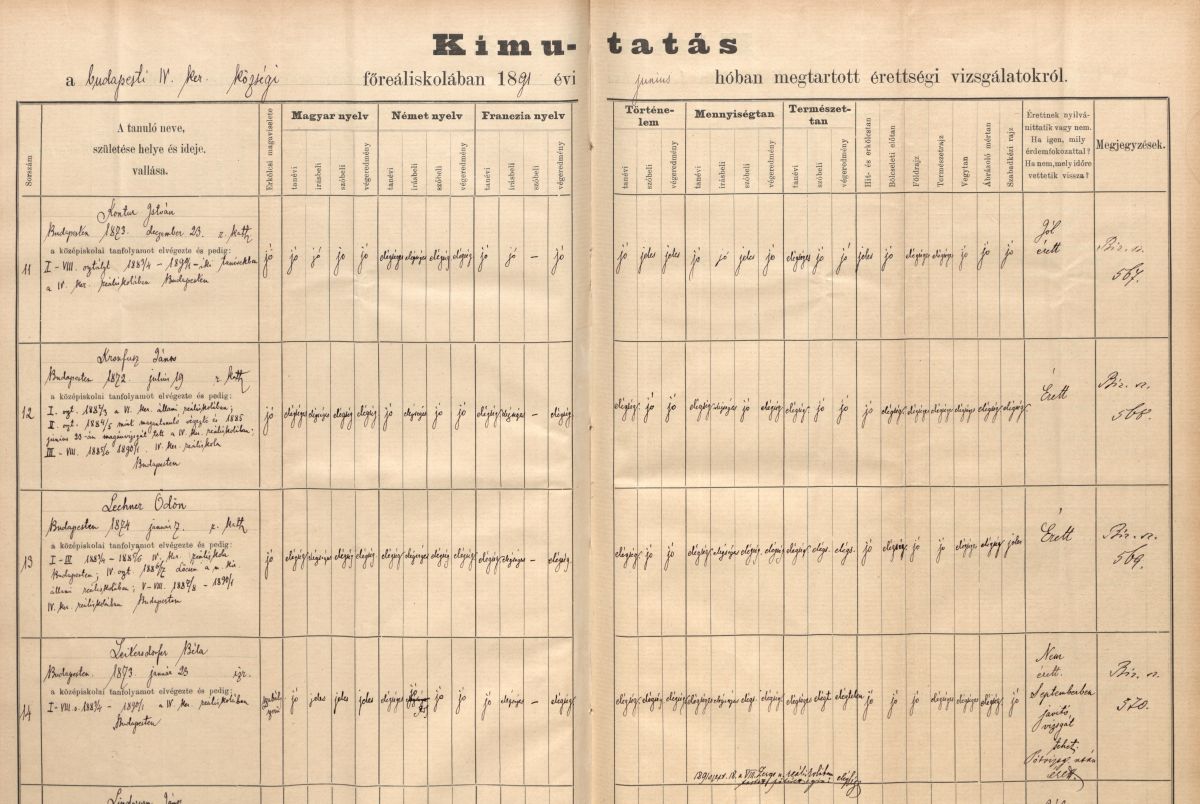 Kimutatás
a budapesti IV. ker. községi főreáliskolában 1891 évi junius hóban megtartott érettségi vizsgálatokról.
Sorszám
A tanuló neve,
születése helye és ideje,
vallása.
Erkölcsi magaviselete
Magyar nyelv
tanévi írásbeli szóbeli végeredmény
Német nyelv
tanévi írásbeli szóbeli végeredmény
Franczia nyelv
tanévi írásbeli szóbeli végeredmény
Történe-
lem
tanévi szóbeli végeredmény
Mennyiségtan
tanévi írásbeli szóbeli végeredmény
Természet-
tan
tanévi szóbeli végeredmény
Hit- és erkölcstan
Bölcseleti előtan
Földrajz
Természetrajz
Vegytan
Ábrázoló mértan
Szabadkézi rajz
Érettnek nyilvá-
níttatik vagy nem.
Ha igen, mily
érdemfokozattal?
Ha nem, mely időre
vettetik vissza?
Megjegyzések.
11
Kontur István
Budapesten 1873. deczember 23. r. kath
a középiskolai tanfolyamot elvégezte és pedig:
I–VIII. osztályt 1883/4 – 1890/1 –iki tanévekben
a IV. ker. reáliskolában Budapesten
jó jó jó jó jó elégséges elégséges elégség elégség jó jó – jó
jó jeles jeles jó jó jeles jó elégséges jó jó jeles jó elégséges elégséges jó jó jó
Jól
érett
Biz. sz.
567.
12
Kronfusz János
Budapesten 1872. julius 19 r. kath
a középiskolai tanfolyamot elvégezte és pedig:
I. oszt. 1882/3 a VI. ker. állami reáliskolában;
II. oszt. 1884/5 mint magántanuló végezte és 1885
junius 23-án magánvizsgát tett a IV. ker. reáliskolában;
III – VIII. 1885/6 1890/1. IV. ker. reáliskola
Budapesten
jó elégséges elégséges elégség elégség jó elégséges jó jó elégség elégséges – elégség
elégség jó jó elégséges elégséges jó elégség elégség jó jó jó elégség elégség elégséges elégség elégség elégség
Érett
Biz. sz.
568.
13
Lechner Ödön
Budapesten 1874 január 7. r. kath
a középiskolai tanfolyamot elvégezte és pedig:
I – III 1883/4 – 1885/6 IV. ker. reáliskola
Budapesten; IV oszt. 1886/7 Lőcsén a m. kir.
állami reáliskolában; V – VIII. 1887/8 – 1890/1
IV. ker. reáliskolában Budapesten
jó elégség elégséges elégség elégség elégség elégséges elégség elégség elégség elégséges – elégség
elégség jó jó elégség elégséges elégség elégség elégség elégs. elégs. jó elégség jó jó elégség elégség jeles
Érett
Biz. sz.
569.
14
Leitersdorfer Béla
Budapesten. 1873. január 23 izr.
a középiskolai tanfolyamot elvégezte és pedig:
I–VIII. o. 1883/4 – 1890/1 a IV. ker. reáliskolában
Budapesten
jó jeles jeles jeles elégséges jó jó jó elégséges – elégség
elégség elégség elégség elégséges elégséges elégs. elégség elégség elégt. elégtelen jó jó jó elégség elégség elégség jó
Nem
érett.
Septemberben
javító
vizsgát
tehet.
Pótvizsg. után
érett.
Biz. sz.
570.
Lindauer János